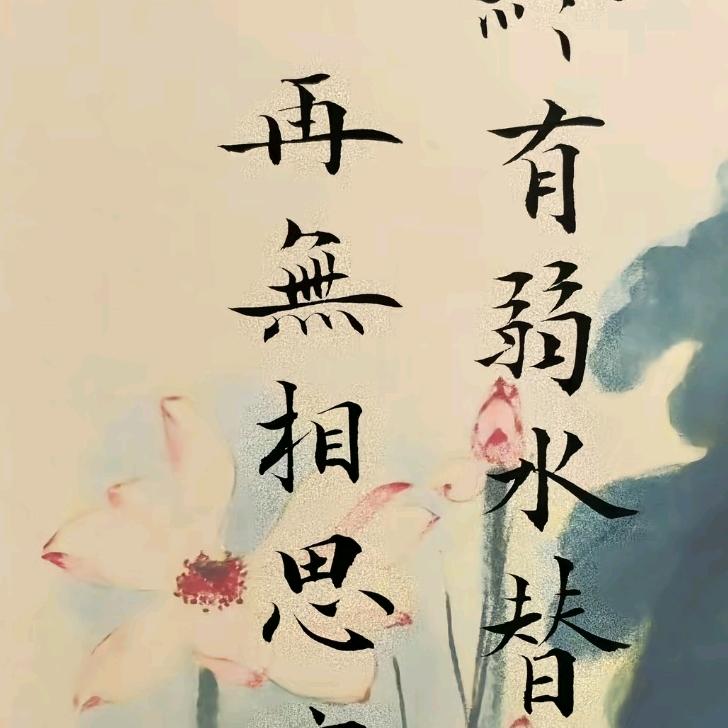 有弱水替
再無相思